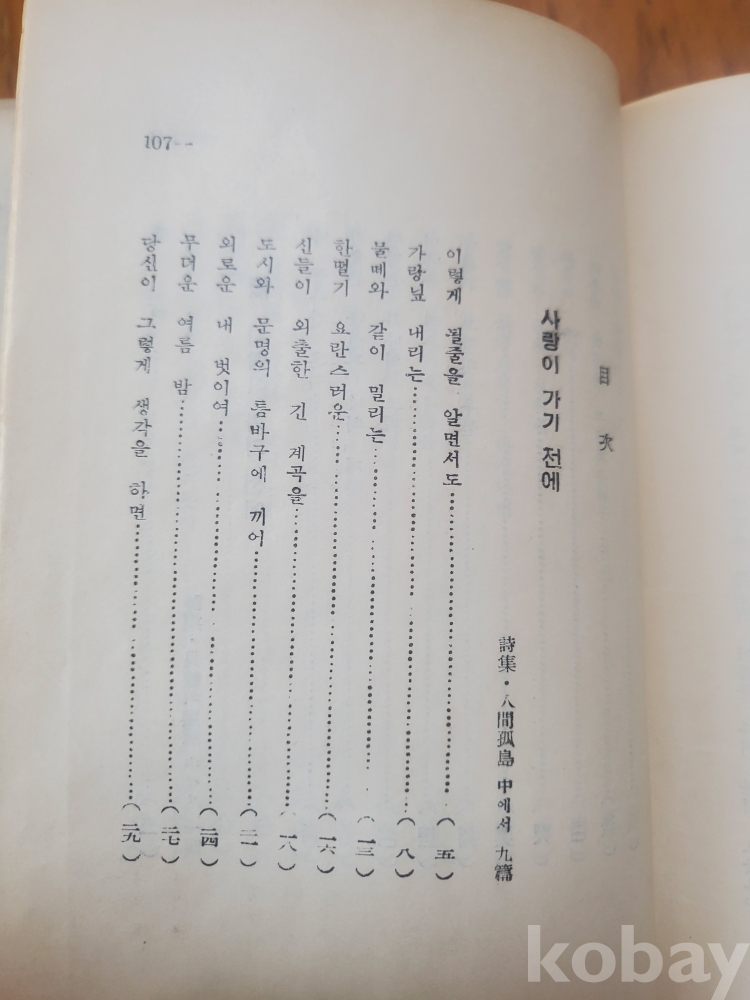 107--
目次
사랑이 가기 전에
詩集·人間孤島 中에서 九篇
이렇게 될줄을 알면서도 (五)
가랑닢 내리는 (八)
물떼와 같이 밀리는 (一三)
한떨기 요란스러운 (一六)
신들이 외출한 긴 계곡을 (一八)
도시와 문명의 틈바구에 끼어 (二一)
외로운 내 벗이여 (二四)
무더운 여름 밤 (二七)
당신이 그렇게 생각을 하면 (二九)
kobay